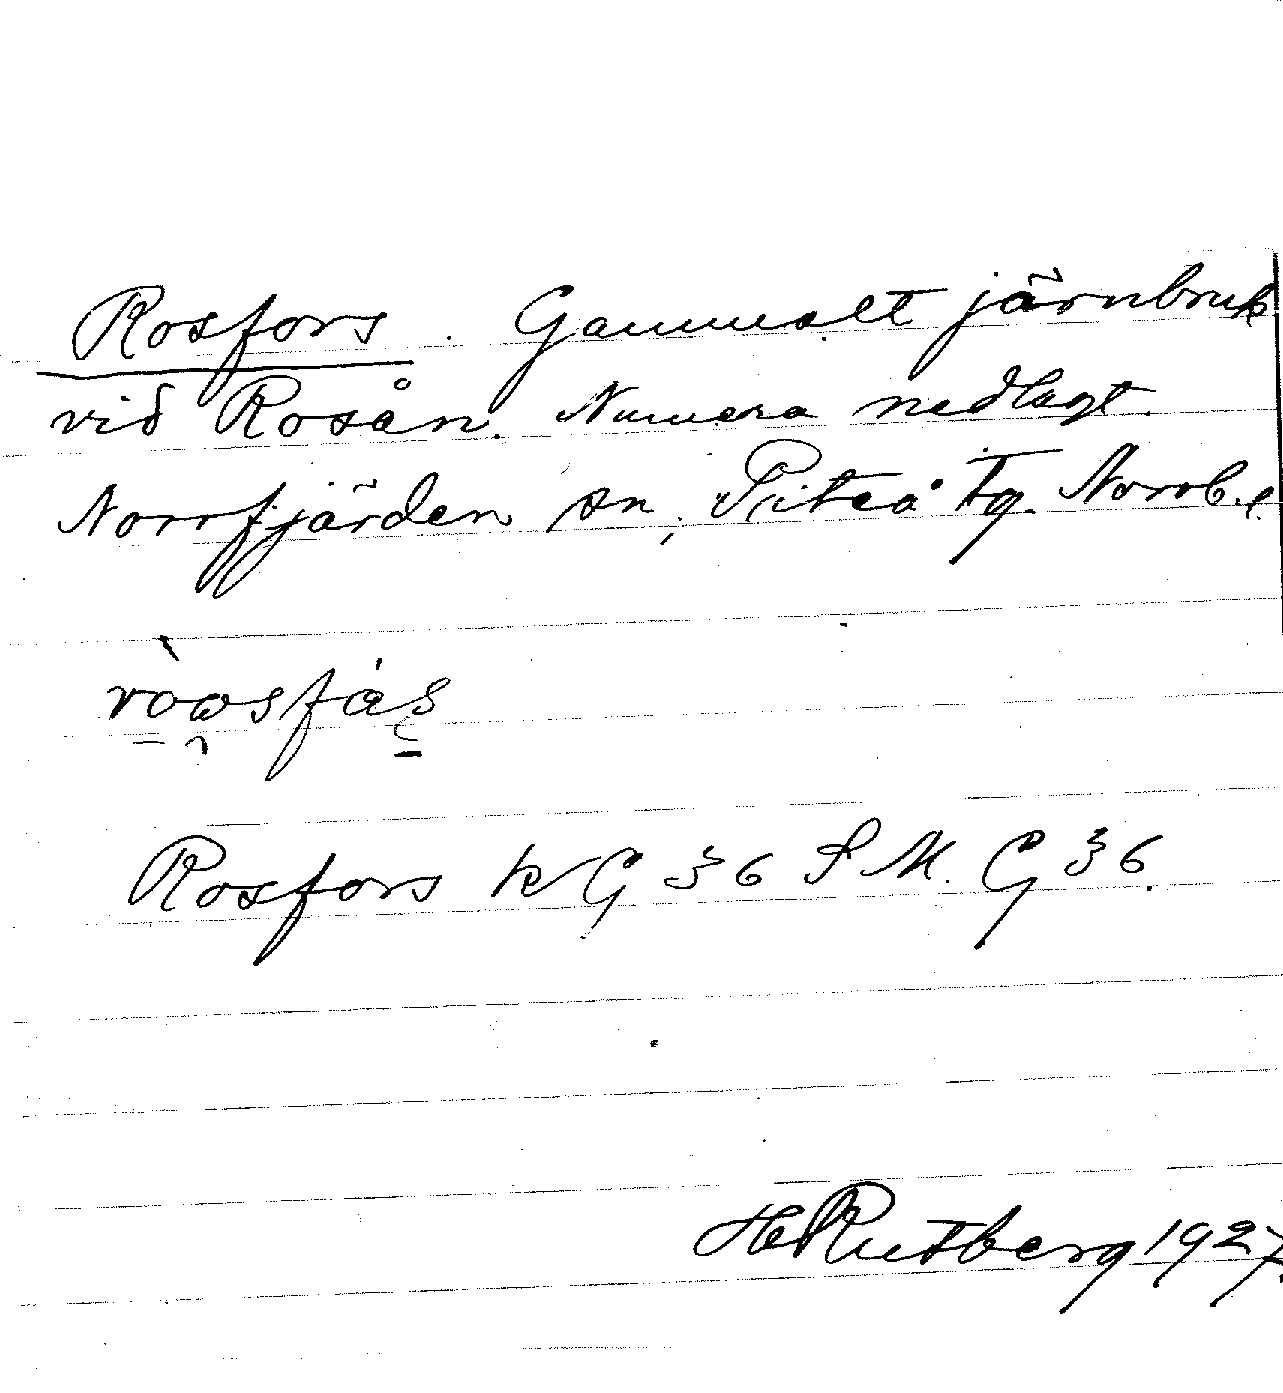 Rosfors. Gammalt järnbruk
vid Rosån. Numera nedlagt.
Norrfjärden sn, Piteå tg. Norrb. l.
Rosfors k G 36 S M. G 36.
H Rutberg 1927.